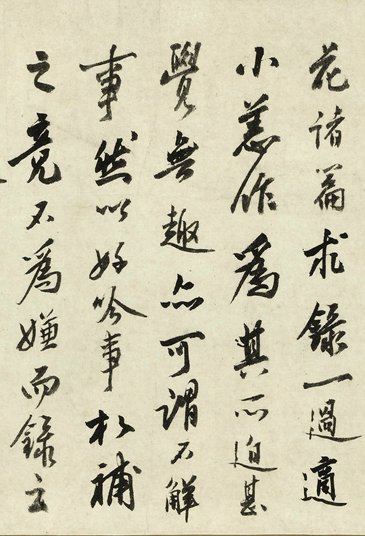 花諸篇求録一過適
小恙作為其所迫甚
覺無趣亦可謂不解
事然以好吟事補
之竟不為嫌而録之